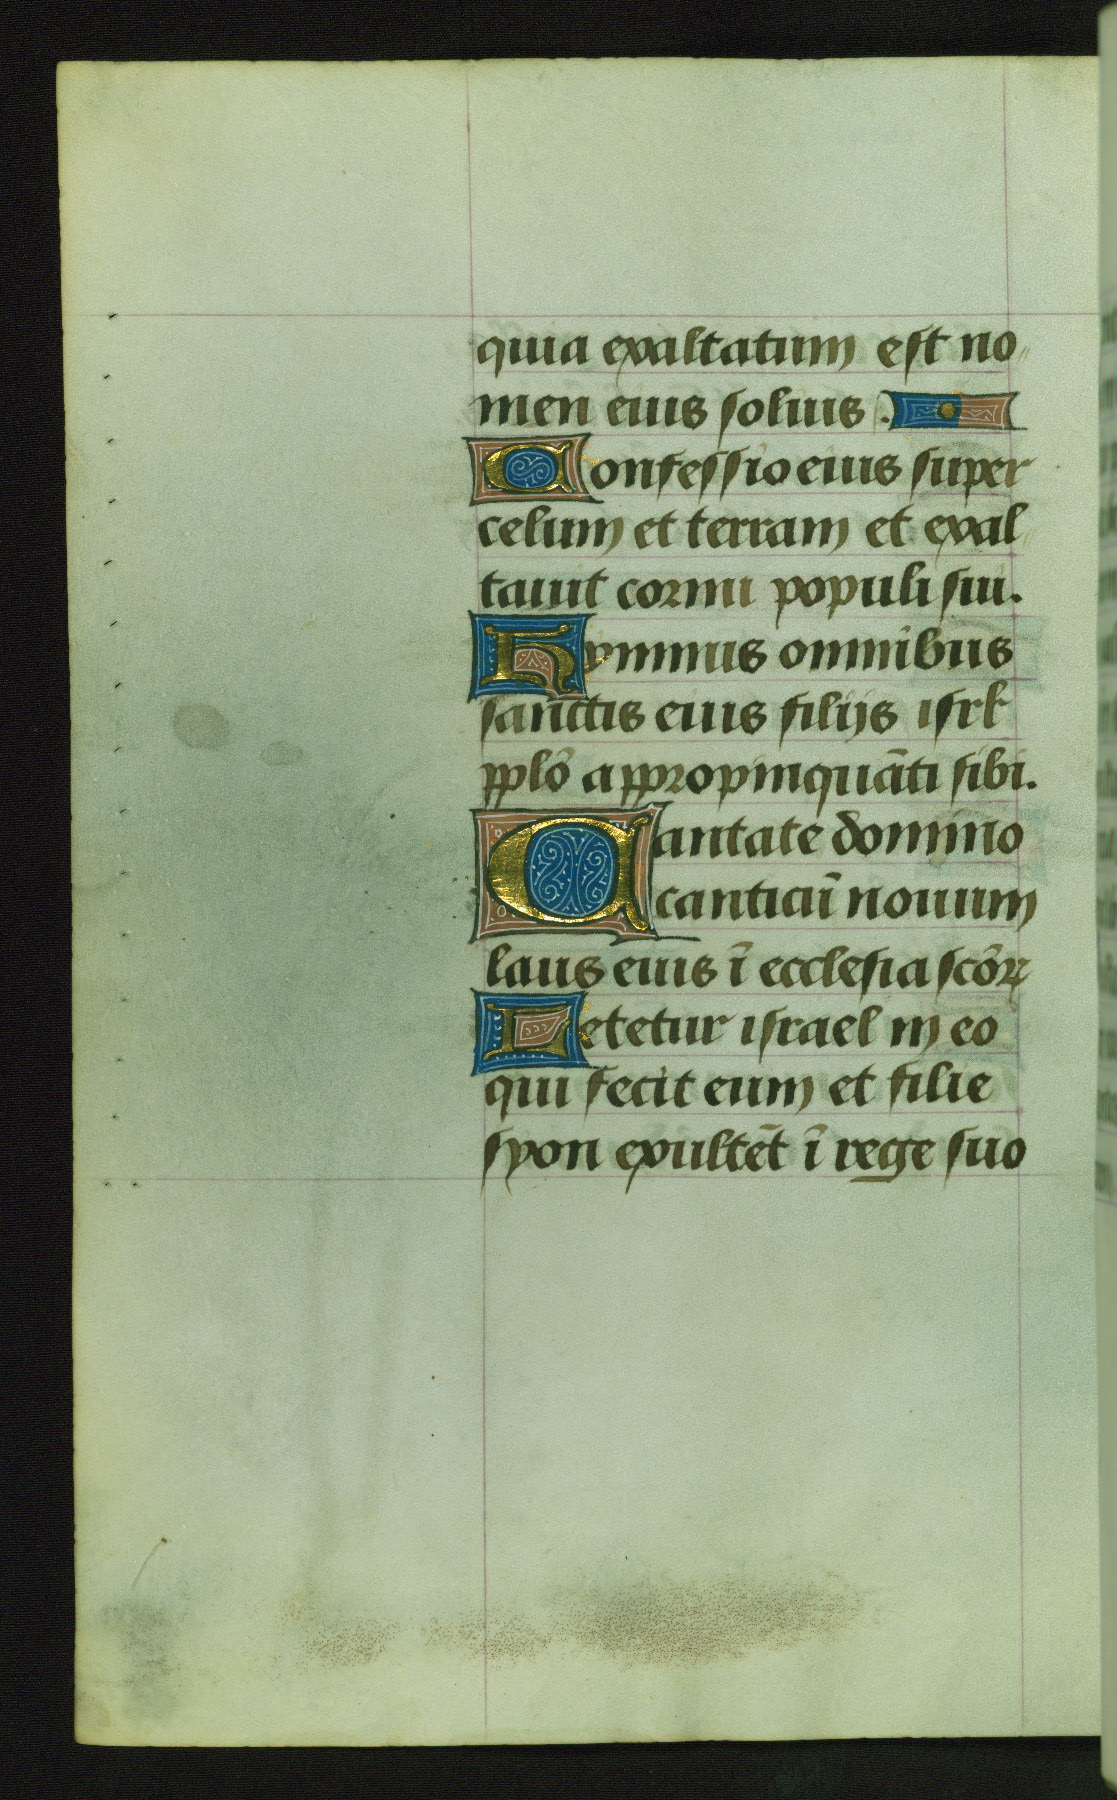 quia exaltatum est no
men eius solius .
Confessio eius super
celum et terram et exal
tauit cornu populi sui.
Hymnus omnibus
sanctis eius filijs isrł
pplō appropinquāti sibi.
Cantate domino
canticū nouum
laus eius ī ecclesia scōꝝ
Letetur israel in eo
qui fecit eum et filie
syon exultēt ī rege suo